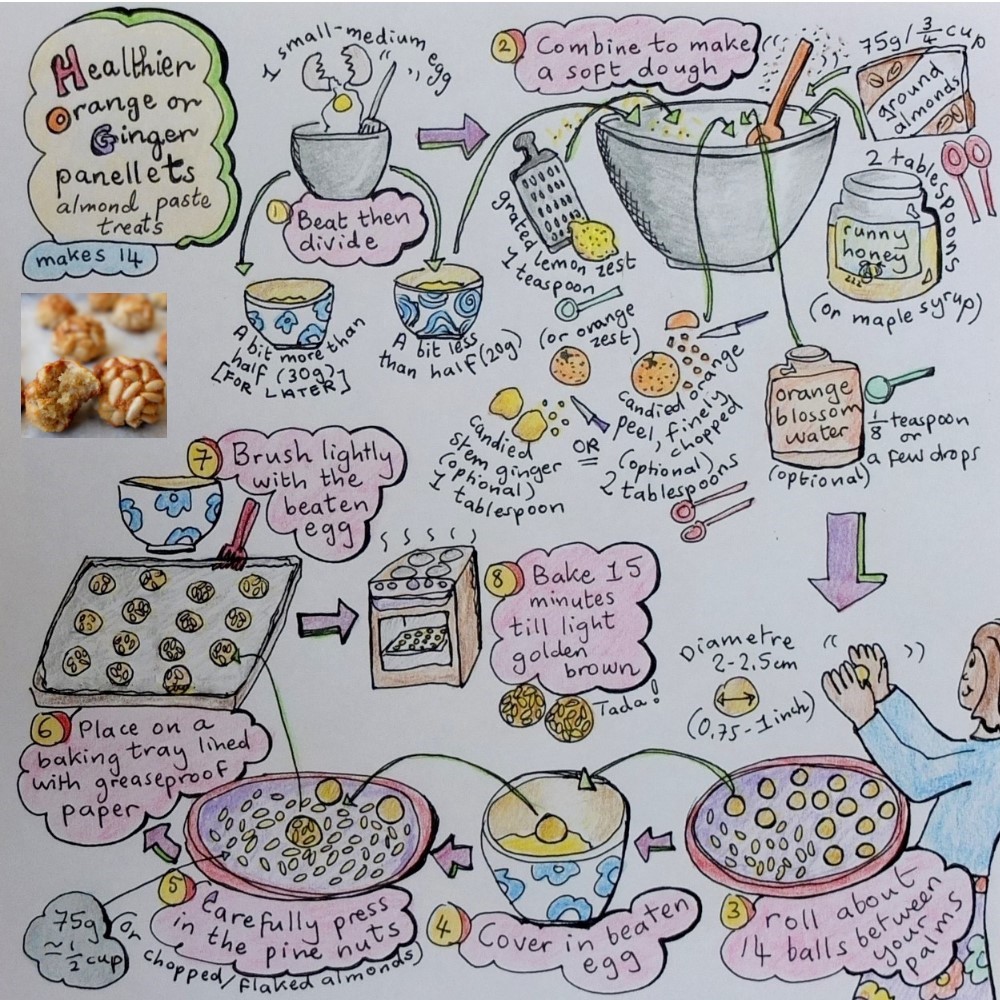 Healthier
Orange or
Ginger
panellets
almond paste
treats
makes 14
1 small-medium egg
1
Beat then
divide
A bit more than
half (30g)
[FOR LATER]
A bit less
than half (20g)
2
Combine to make
a soft dough
75g/ 3/4 cup
ground
almonds
2 tablespoons
runny
honey
(or maple syrup)
grated lemon zest
1 teaspoon
(or orange
zest)
candied
stem ginger
(optional)
1 tablespoon
OR
candied orange
peel, finely
chopped
(optional)
2 tablespoons
orange
blossom
water
(optional)
1/8 teaspoon
or
a few drops
3
roll about
14 balls between
your
palms
Diametre
2-2.5cm
(0.75-1inch)
4
Cover in beaten
egg
5
Carefully press
in the pine nuts
75g
≃ 1/2 cup
or
chopped/flaked almonds)
6
Place on a
baking tray lined
with greaseproof
paper
7
Brush lightly
with the
beaten
egg
8
Bake 15
minutes
till light
golden
brown
Tada!